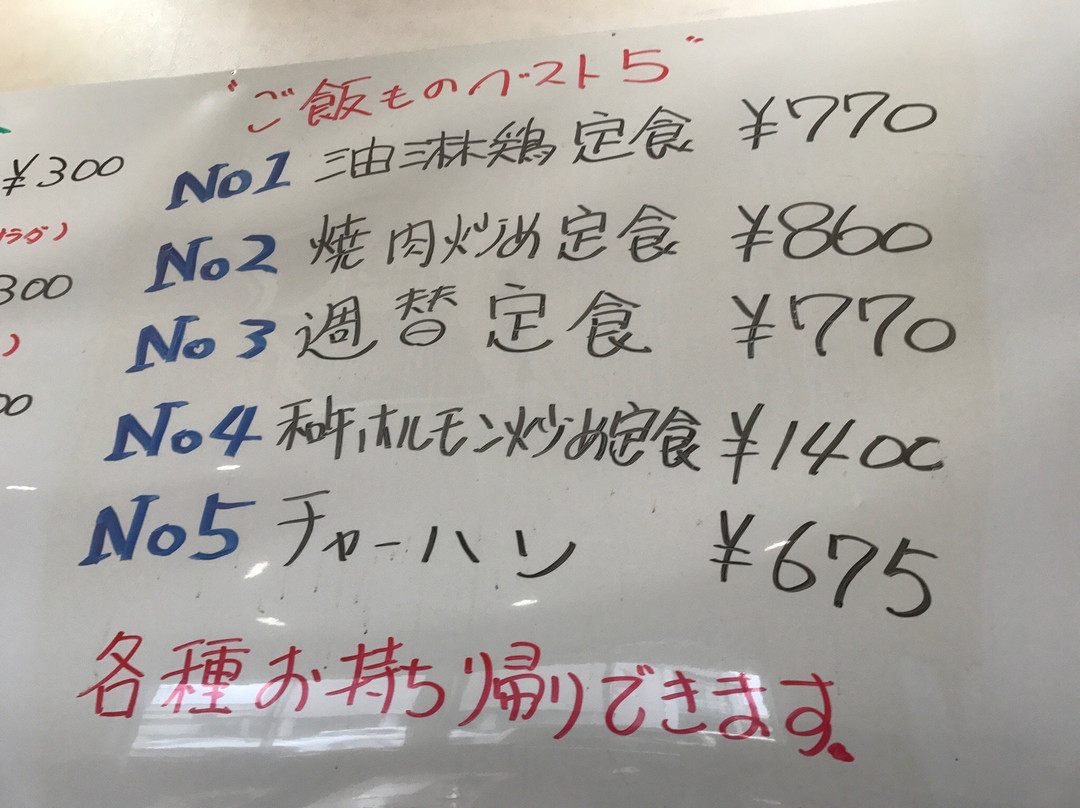 "ご飯ものベスト5"
¥300
No1 油淋鶏定食 ¥770
ラダ)
300
No2 焼肉炒め定食 ¥860
)
No3 週替定食 ¥770
00
No4 和牛ホルモン炒め定食 ¥1400
No5 チャーハン ¥675
各種お持ち帰りできます。